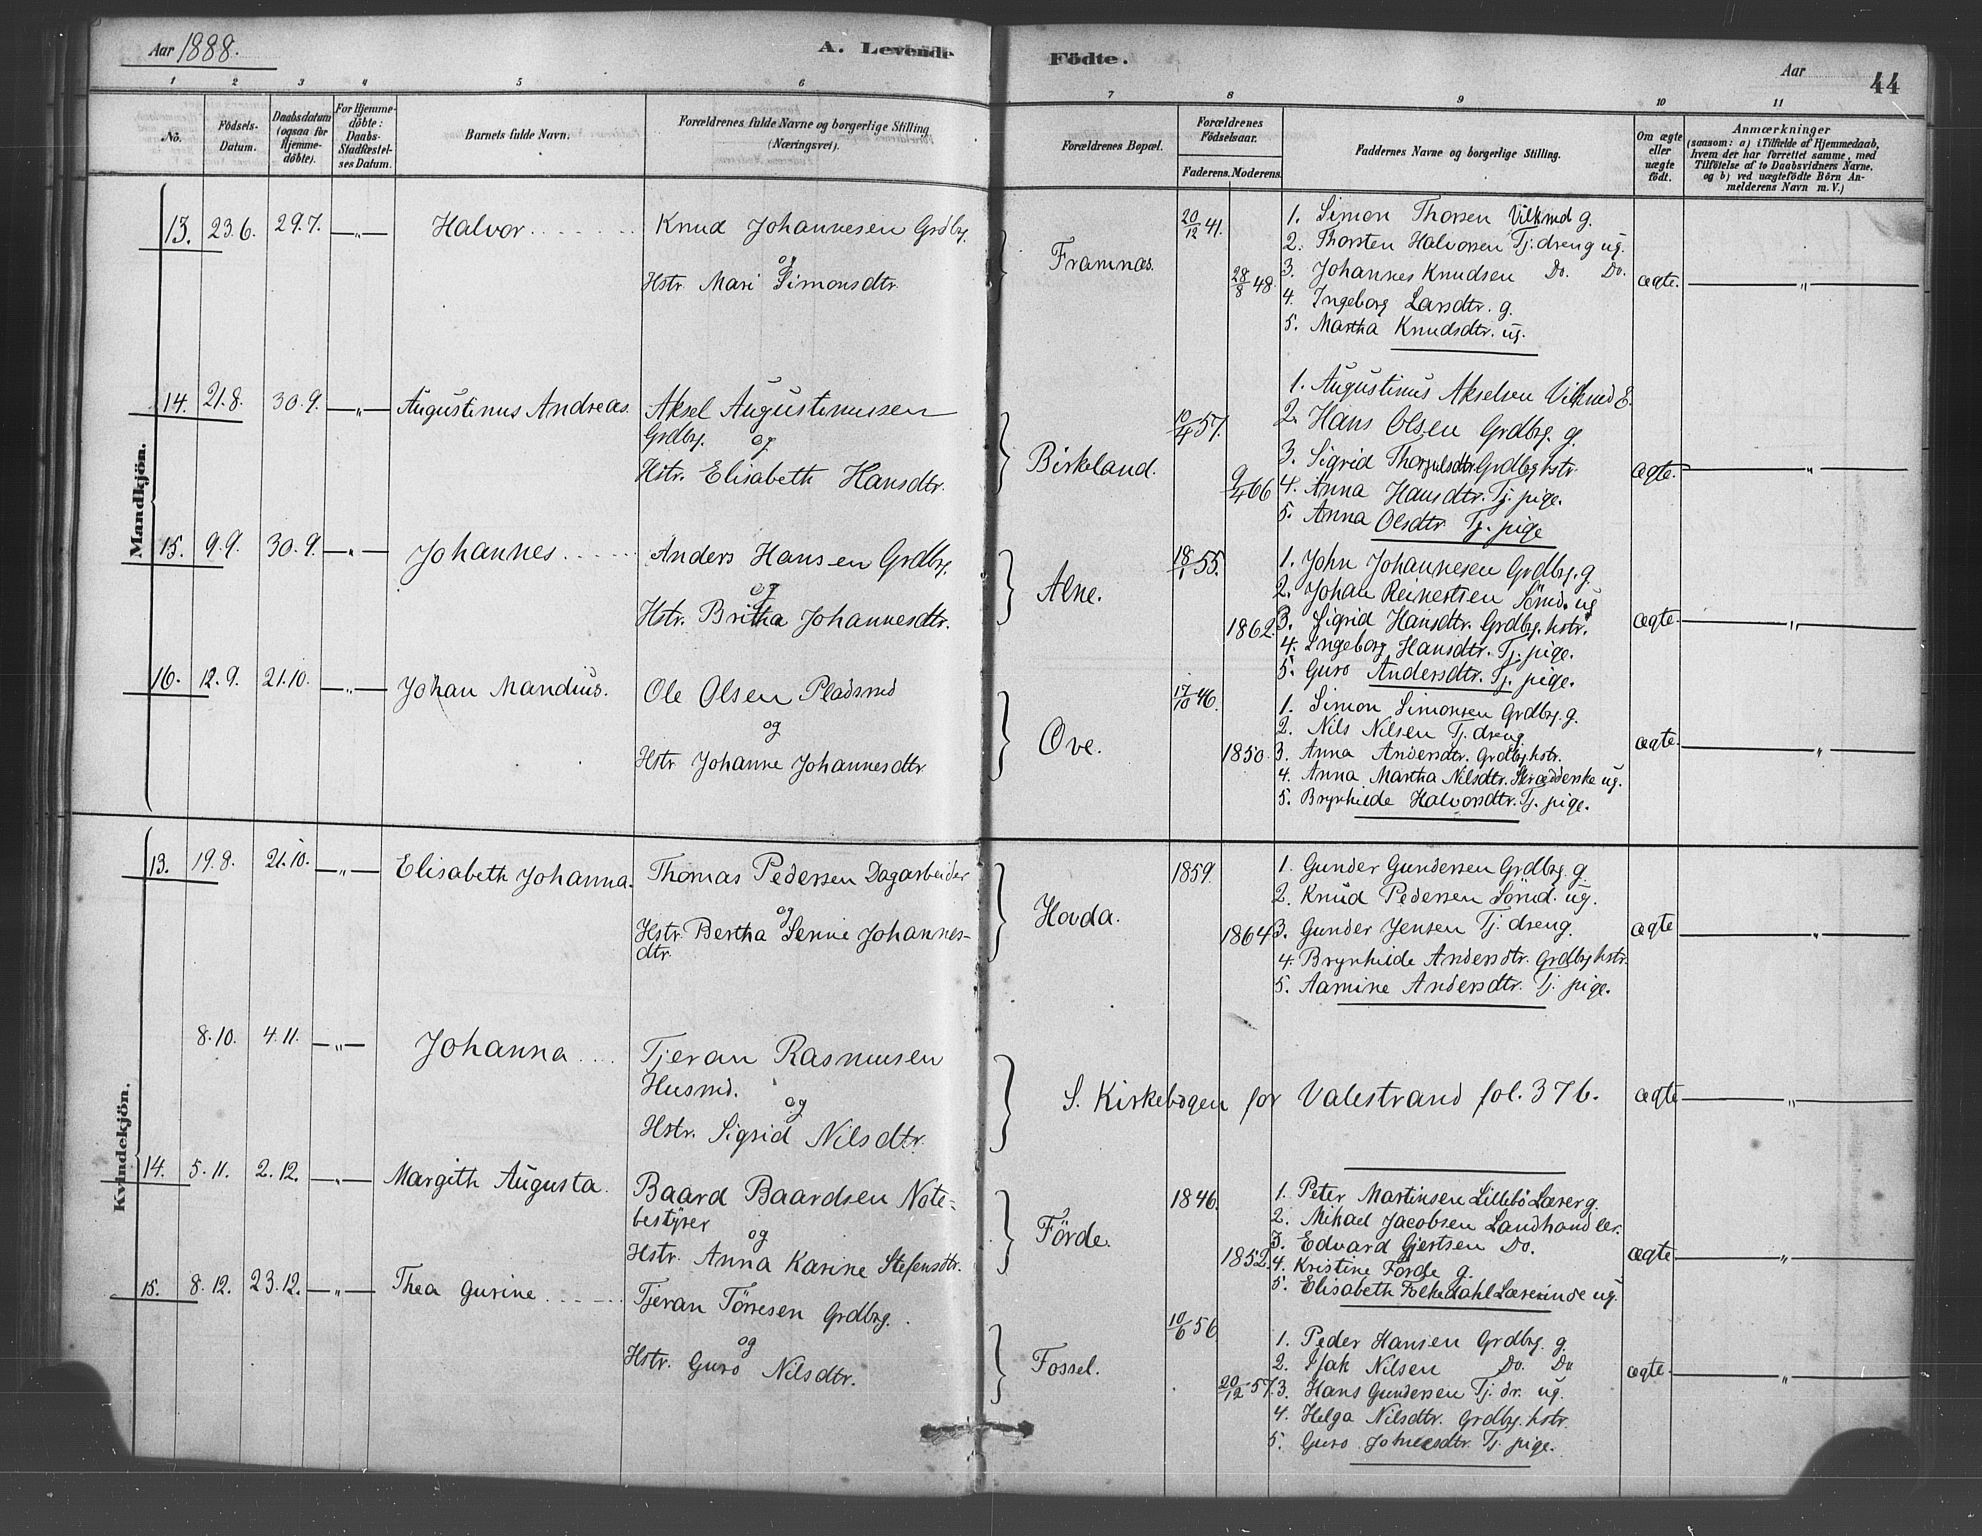 Aar 1888.
A. Levende Födte.
Aar
44
1 2 3 4 5 6 7 8 9 10 11
No.
Födsels-
Datum.
Daabsdatum
(ogsaa for
Hjemme-
döbte).
For Hjemme-
döbte:
Daabs-
Stadfæstel-
ses Datum.
Barnets fulde Navn.
Forældrenes fulde Navne og borgerlige Stilling
(Næringsvei).
Forældrenes Bopæl.
Forældrenes
Födselsaar.
Faderens. Moderens.
Faddernes Navne og borgerlige Stilling.
Om ægte
eller
uægte
födt.
Anmærkninger
(saasom: a) i Tilfælde af Hjemmedaab,
hvem der har forrettet samme, med
Tilföielse af to Daabsvidners Navne,
og b) ved uægtefödte Börn An-
melderens Navn m. V.)
Mandkjön.
13. 23.6. 29.7. —„— Halvor
Knud Johannesen Grdbr.
og
Hstr. Mari Simonsdtr.
Framnæs.
20/12 41.
28/8 48.
1. Simon Thorsen Vilkmd g.
2. Thorsten Halvorsen Tj. dreng ug.
3. Johannes Knudsen Do. Do.
4. Ingeborg Larsdtr. g.
5. Martha Knudsdtr. ug.
ægte. —„—
14. 21.8. 30.9. —„— Augustinus Andreas.
Aksel Augustinussen
Grdbr. og
Hstr. Elisabeth Hansdtr.
Birkeland.
10/4 57.
9/4 66
1. Augustinus Akselsen Vilkmd E.
2. Hans Olsen Grdbr. g.
3. Sigrid Grdbr. hstr.
4. Anna Hansdtr. Tj. pige.
5. Anna Olsdtr Tj. pige
ægte. —„—
15. 9.9. 30.9. —„— Johannes
Anders Hansen Grdbr.
og
Hstr. Britha Johannesdtr.
Alne.
18/1 55.
1862.
1. John Johannesen Grdbr. g.
2. Johan Reinertsen Sönd. ug
3. Sigrid Hansdtr. Grdbr. hstr.
4. Ingeborg Hansdtr. Tj. pige.
5. Guro Andersdtr. Tj. pige.
ægte —„—
16. 12.9. 21.10. —„— Johan Mandius.
Ole Olsen Pladsmd
og
Hstr Johanne Johannesdtr
Ove.
17/10 46.
1850.
1. Simon Simonsen Grdbr. g.
2. Nils Nilsen Tj. dreng
3. Anna Andersdtr. Grdbr. hstr.
4. Anna Martha Nilsdtr. Skrædderske ug.
5. Brynhilde Halvorsdtr. Tj. pige.
ægte —„—
Kvindekjön.
13. 19.8. 21.10. —„— Elisabeth Johanna.
Thomas Pedersen Dagarbeider
og
Hstr. Bertha Serine Johannes-
dtr.
Hovda.
1859.
1864
1. Gunder Gundersen Grdbr. g.
2. Knud Pedersen Sönd. ug.
3. Gunder Jensen Tj. dreng.
4. Brynhilde Andersdtr. Grdbr hstr.
5. Aamine Andersdtr. Tj. pige.
ægte —„—
8.10. 4.11. —„— Johanna
Tjeran Rasmusen
Husmd.
og
Hstr. Sigrid Nilsdtr.
S. Kirkebogen for Valestrand fol. 376.
ægte —„—
14. 5.11. 2.12. —„— Margith Augusta.
Baard Baardsen Note-
bestyrer
og
Hstr. Anna Karine Stefensdtr.
Förde.
1846.
1852.
1. Peter Martinsen Lillebö Lærer g.
2. Mikael Jacobsen Landhandler.
3. Edvard Gjertsen Do.
4. Kristine Förde g.
5. Elisabeth Folkedahl Lærerinde ug.
ægte —„—
15. 8.12. 23.12. —„— Thea Gurine
Tjeran Törresen Grdbr.
og
Hstr. Guro Nilsdtr.
Fossel.
10/6 56
20/12 57.
1. Peder Hansen Grdbr. g.
2. Isak Nilsen Do. Do
3. Hans Gundersen Tj. dr. ug.
4. Helga Nilsdtr. Grdbr. hstr.
5. Guro Tj. pige.
ægte. —„—